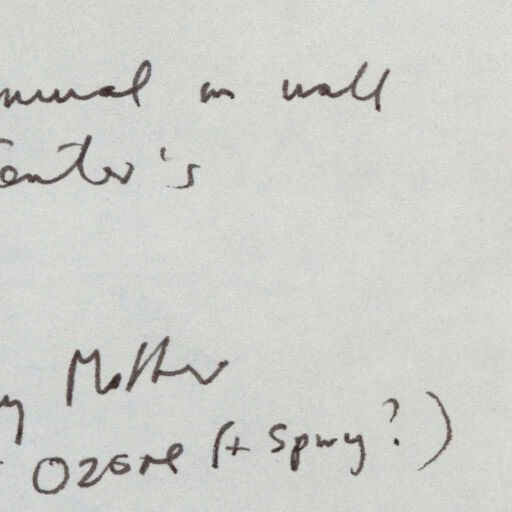 mural on wall
enter's
Mother
OZONE (+ Spray?)